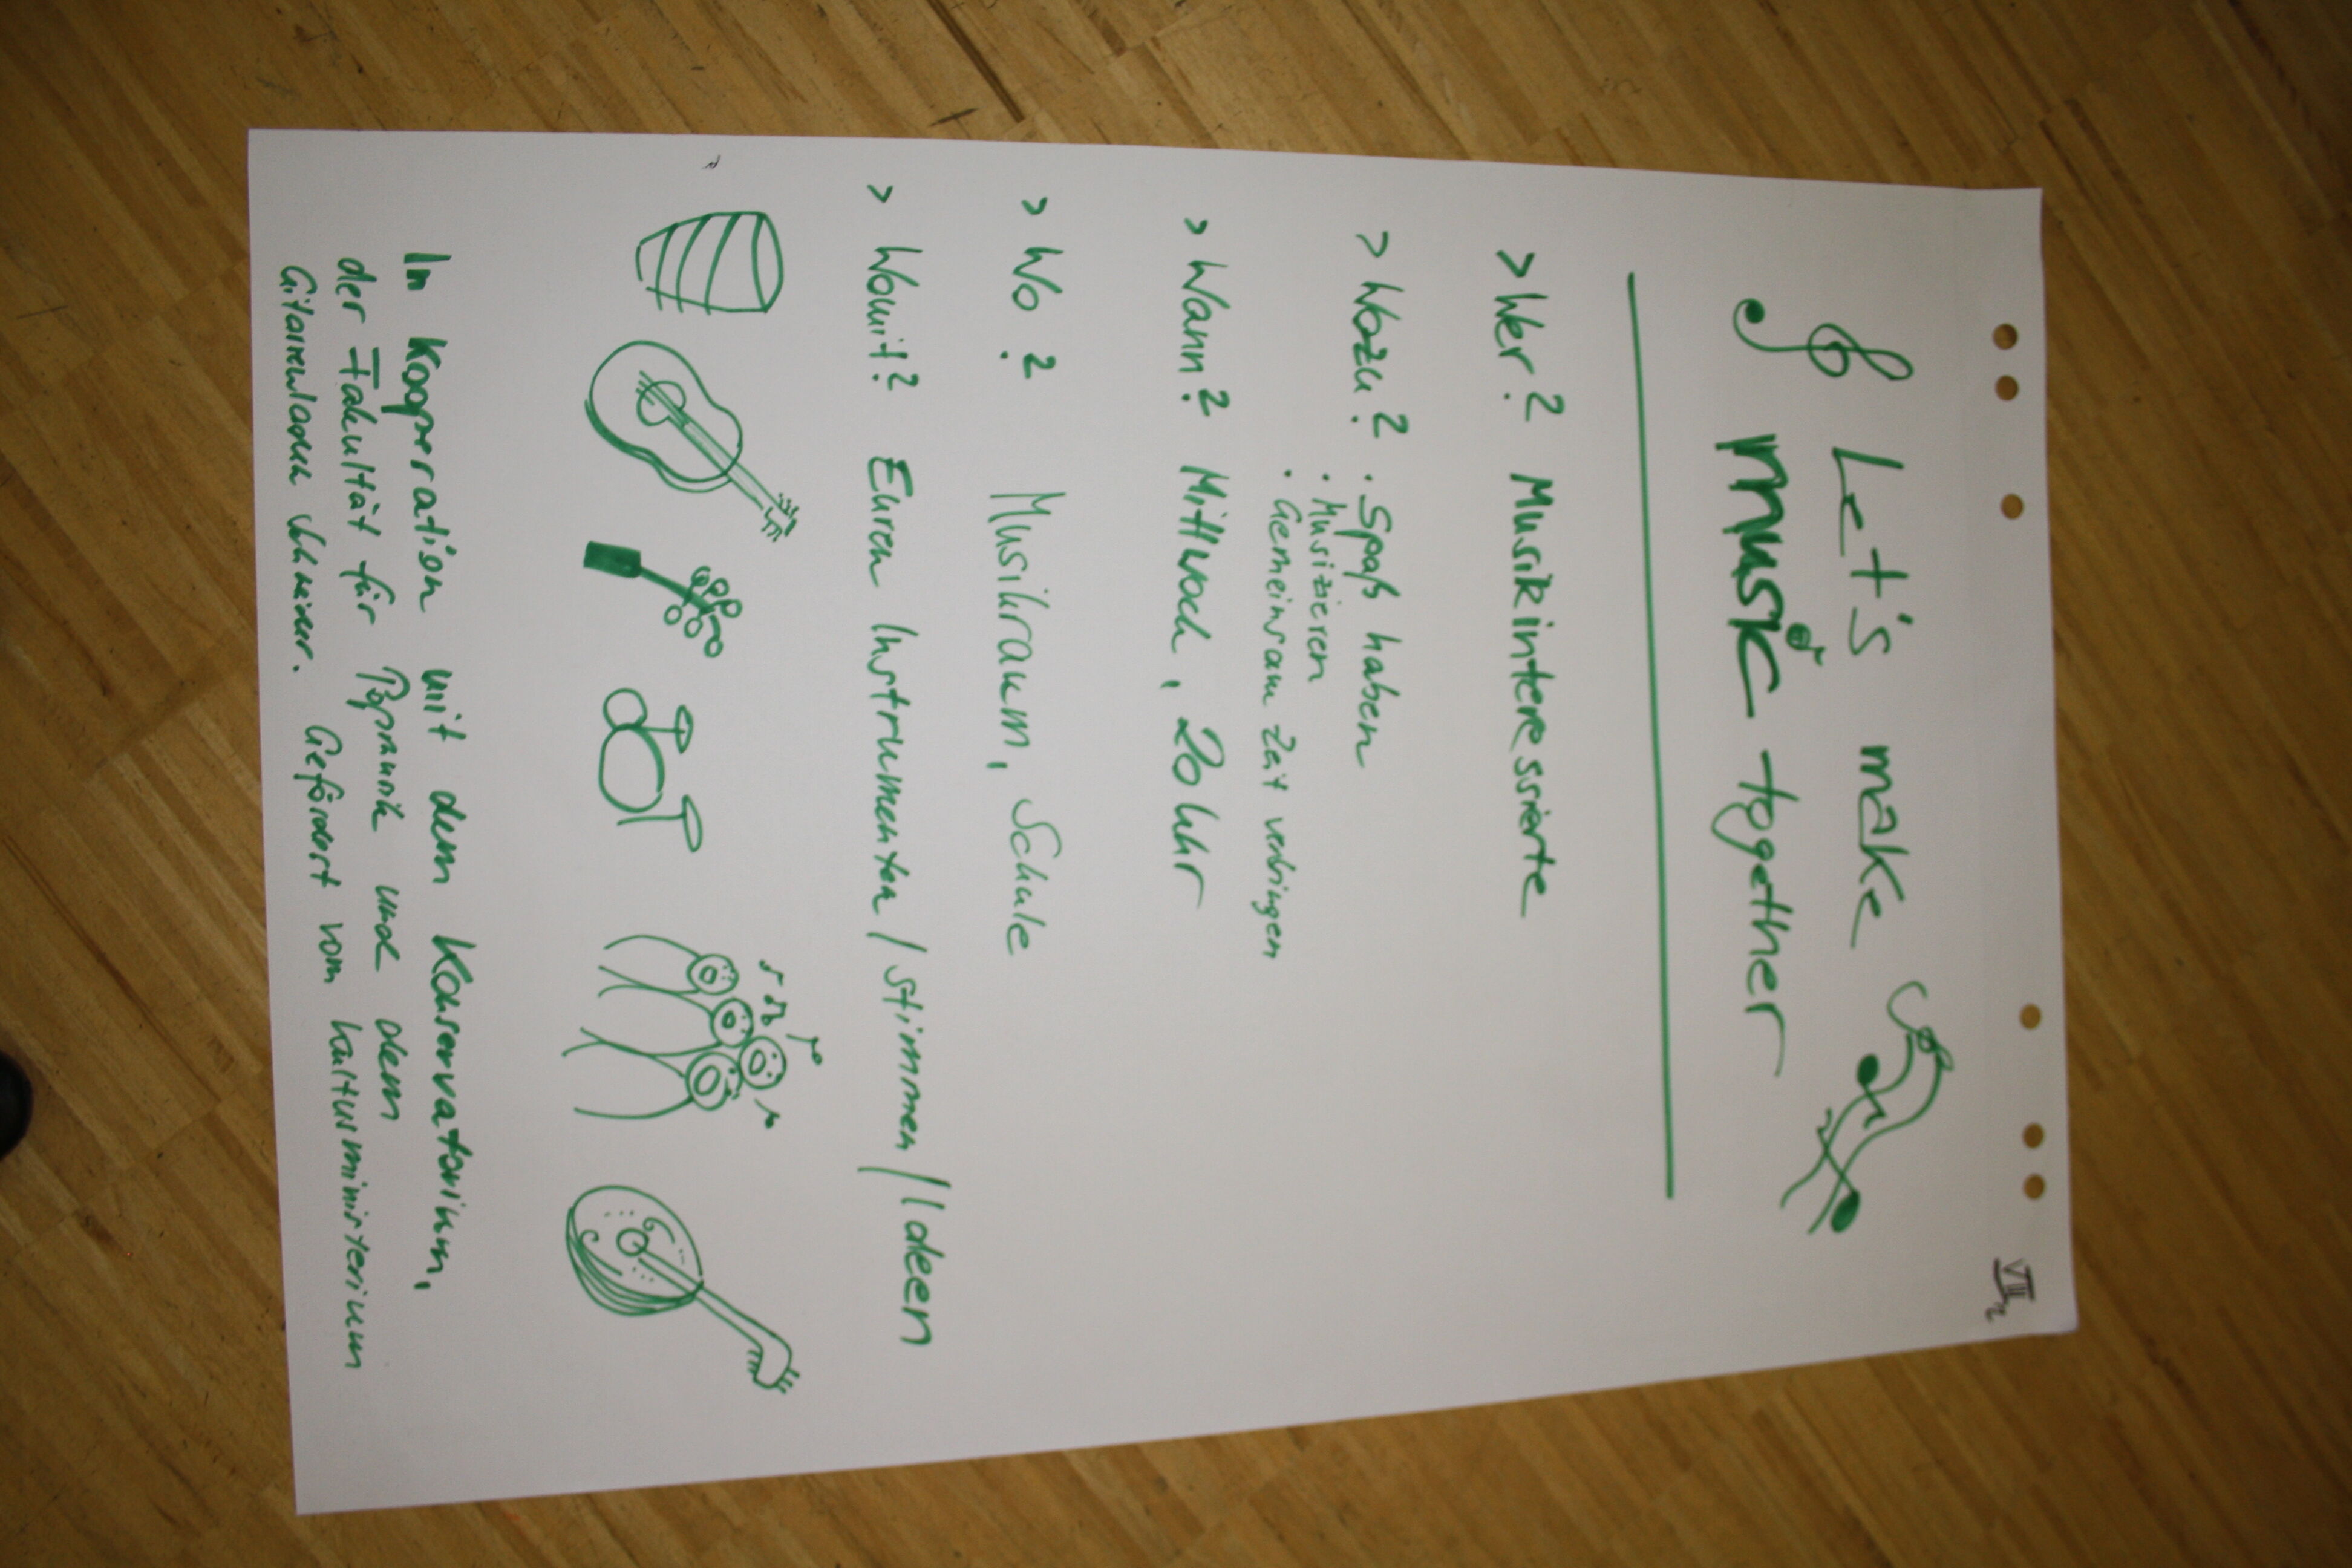 VII
Let's make
music together
> Wer? Musikinteressierte
> Wozu? · Spaß haben
· Musizieren
· Gemeinsam Zeit verbringen
> Wann? Mittwoch, 20 Uhr
> Wo? Musikraum, Schule
> Womit? Euren Instrumenten / Stimmen / Ideen
In Kooperation mit dem Konservatorium,
der Fakultät für Popmusik und dem
Gitarrenladen Gefördert vom Kultusministerium